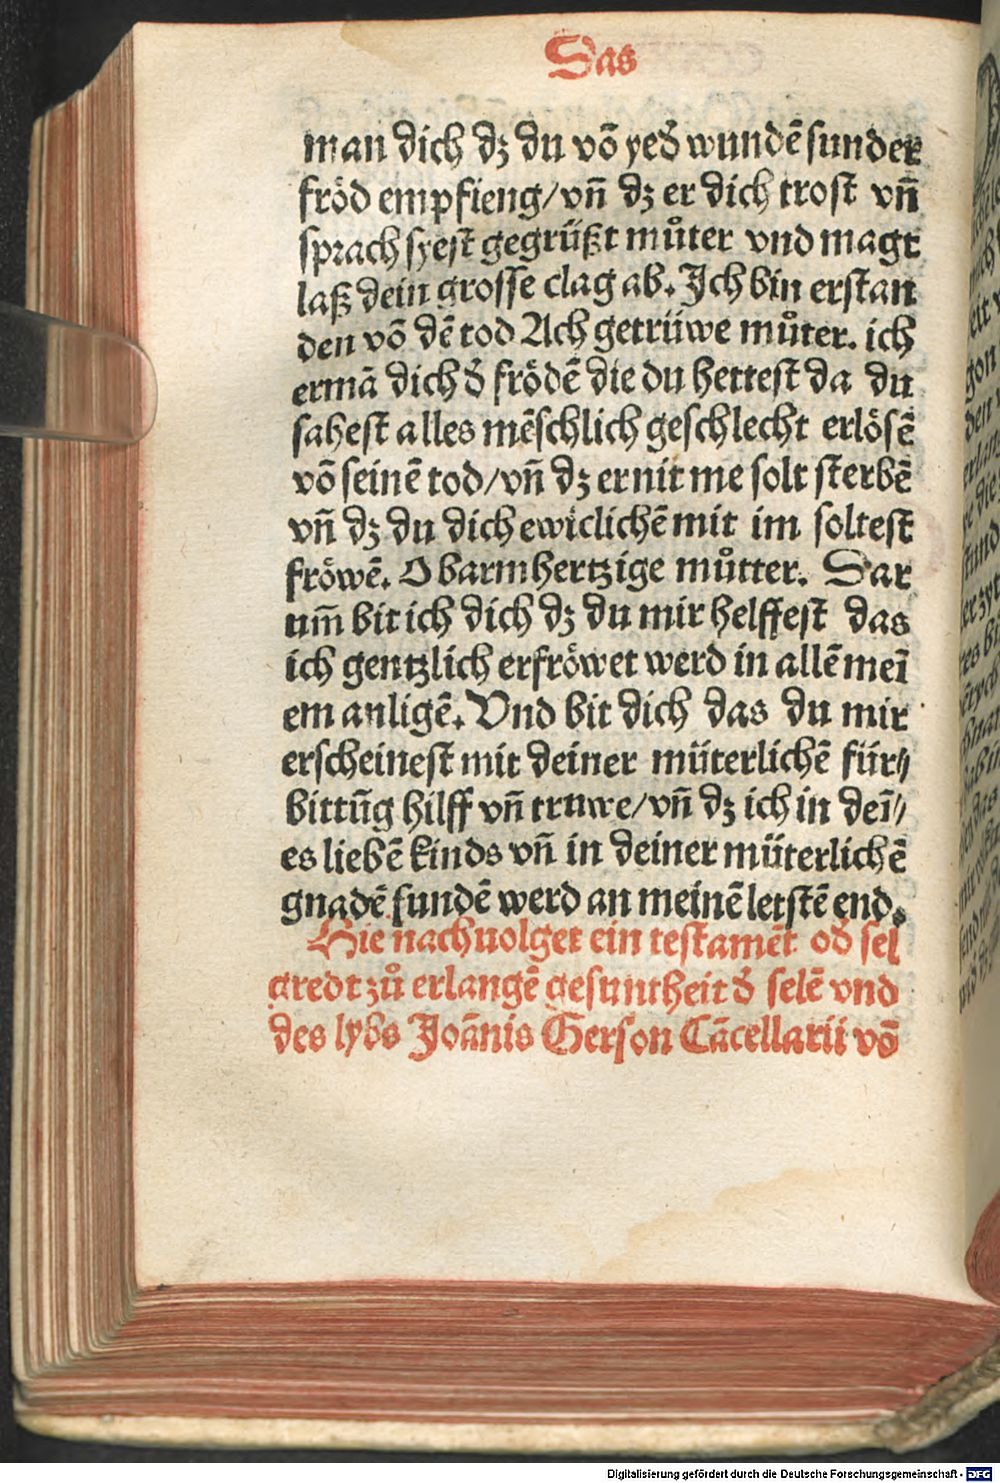 Das
man dich dz du võ yeđ wundẽ sunder
fröd empfieng/vñ dz er dich trost vñ
sprach syest gegrüßt můter vnd magt
laß dein grosse clag ab. Ich bin erstan
den võ dẽ tod Ach getrüwe můter. ich
ermã dich đ frödẽ die du hettest da du
sahest alles mẽschlich geschlecht erlösẽ
võ seinẽ tod/vñ dz er nit me solt sterbẽ
vñ dz du dich ewiclichẽ mit im soltest
fröwẽ. O barmhertzige můtter. Dar
um̃ bit ich dich dz du mir helffest das
ich gentzlich erfröwet werd in allẽ meĩ
em anligẽ. Vnd bit dich das du mir
erscheinest mit deiner müterlichẽ für⸗
bittũg hilff vñ truwe/vñ dz ich in deĩ⸗
es liebẽ kinds vñ in deiner müterlichẽ
gnadẽ fundẽ werd an meinẽ letstẽ end.
Hie nachuolget ein testamẽt ođ sel
gredt zů erlangẽ gesuntheit đ selẽ vnd
des lybs Joãnis Gerson Cãcellarii võ
Digitalisierung gefördert durch die Deutsche Forschungsgemeinschaft - DFG